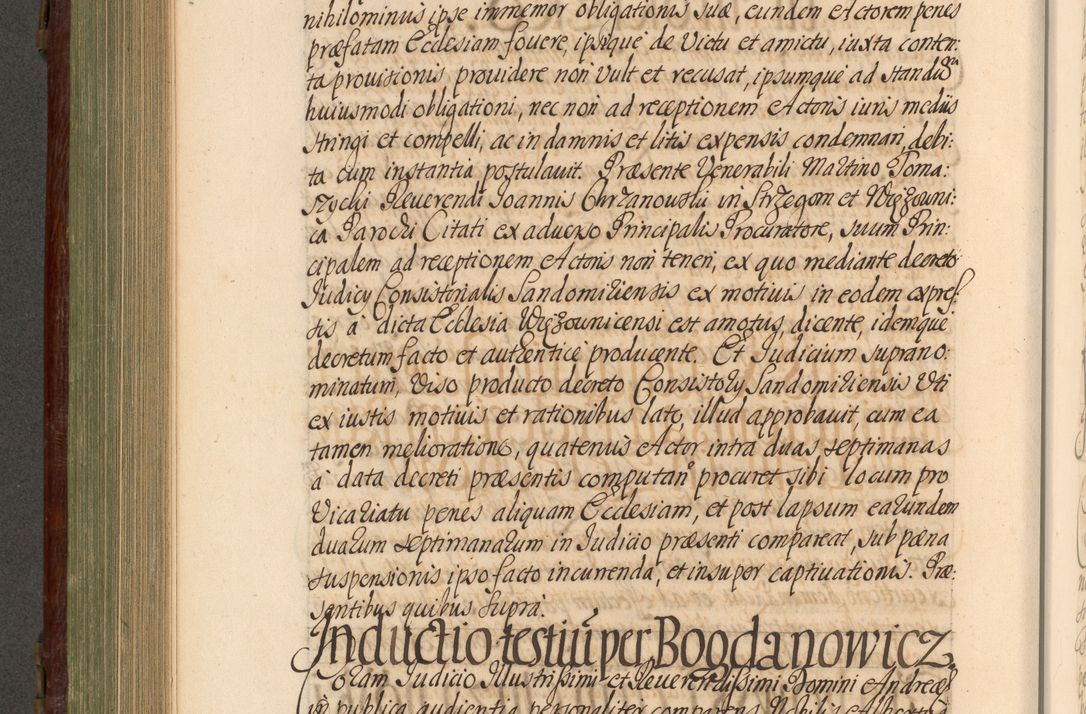 nihilominus ipse immemor obligationis suæ, eundem Actorem penes
præfatam Ecclesiam fovere, ipsique de Victu et amictu, iuxta conten:
ta provisionis providere non vult et recusat, ipsumque ad standum
huiusmodi obligationi, nec non ad receptionem Actoris iuris mediis
stringi et compelli, ac in damnis et litis expensis condemnari, debi:
ta cum instantia postulavit. Præsente Venerabili Martino Toma:
szycki Reverendi Joannis Chrzanowski in Strzegom et Wiązowni:
ca Parochi Citati ex adverso Principalis Procuratore, suum Prin:
cipalem ad receptionem Actoris non teneri, ex quo mediante decreto
Judicy Consistorialis Sandomiriensis ex motivis in eodem expres:
sis à dicta Ecclesia Wiązownicensi est amotus, dicente, idemque
decretum facto et authentice producente. Et Judicium suprano:
minatum, viso producto decreto Consistory Sandomiriensis uti
ex iustis motivis et rationibus lato, illud approbavit, cum ea
tamen melioratione, quatenus Actor intra duas septimanas
à data decreti præsentis computan procuret sibi locum pro
Vicariatu penes aliquam Ecclesiam, et post lapsum earundem
duarum septimanarum in Judicio præsenti compareat, sub pæna
suspensionis ipso facto incurrenda, et insuper captivationis. Præ:
sentibus quibus supra.
Inductio testiū per Bogdanowicz.
Coram Judicio Illustrissimi et Reverendissimi Domini Andreæ
in publica audientia personaliter comparens Nobilis